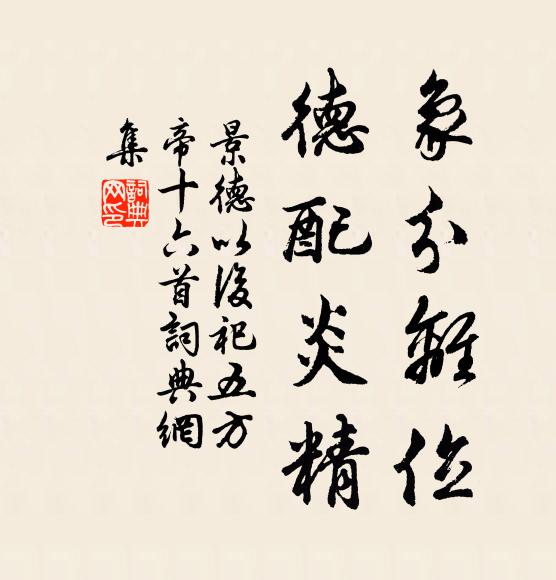 象分離位
德配炎精
景德以後祀五方
帝十六首詞典網
集
詞典
网印